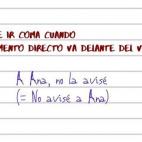 E IR COMA CUANDO
MENTO DIRECTO VA DELANTE DEL V
A Ana, no la avisé
(= No avisé a Ana)